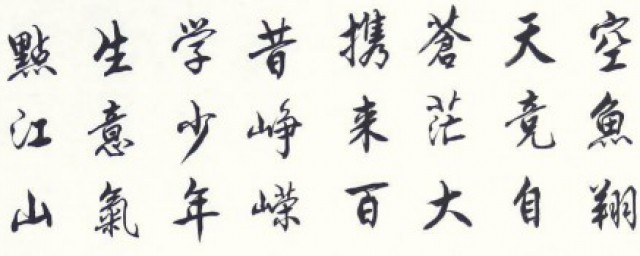 空魚翔
天竞自
蒼茫大
携来百
昔峥嵘
学少年
生意氣
點江山